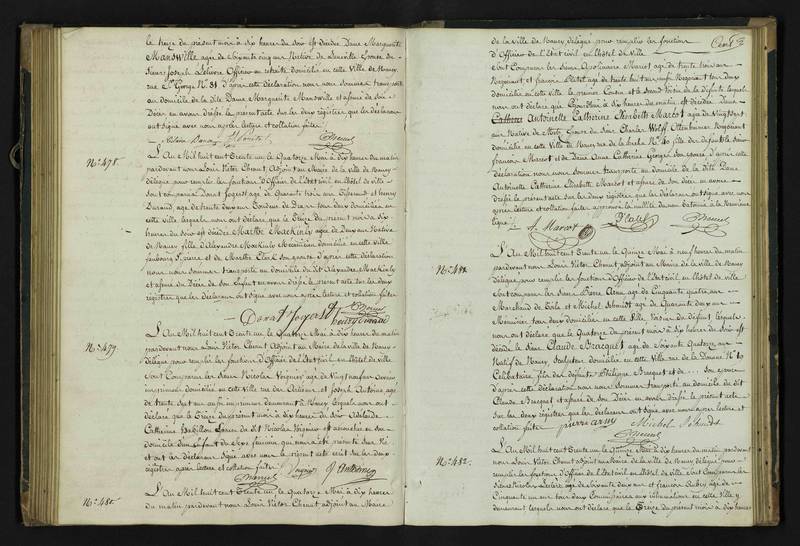 le treize du présent mois à dix heures du soir est décédée Dame Marguerite
Mansville agée de soixante cinq ans Native de Lunéville Epouse de
Sieur Joseph Lelièvre Officier en retraite domicilié en cette Ville de Nancy
rue St George N° 31 d'après cette déclaration nous nous sommes transporté
au domicile de la dite Dame Marguerite Mansville et assuré de son
Décès en avons dressé le présent acte sur les deux registres que les déclarans
ont signé avec nous après lecture et collation faite
N° 478.
L'An Mil huit cent Trente un le Quatorze Mai à dix heures du matin
pardevant nous Louis Victor Chenut Adjoint au Maire de la ville de Nancy
délégué pour remplir les fonctions d'Officier de l'Etat civil en l'hôtel de ville
sont comparus Donat fogarst agé de Quarante trois ans et henry
agé de trente deux ans tous deux domiciliés en
cette ville lesquels nous ont déclaré que le Treize du présent mois à dix
heures du soir est décédée Marthe Mackinly agée de deux ans Native
de Nancy fille d'Alexandre Mackinly Mécanicien domicilié en cette ville
faubourg St pierre et de Marthe son épouse d'après cette déclaration
nous nous sommes transporté au domicile du dit Alexandre Mackinly
et assuré du Décès de son Enfant en avons dressé le présent acte sur les deux
registres que les déclarans ont signé avec nous après lecture et collation faite
Donat fogarst
N° 479
L'An Mil huit cent Trente un le Quatorze Mai à dix heures du matin
pardevant nous Louis Victor Chenut Adjoint au Maire de la ville de Nancy
délégué pour remplir les fonctions d'Officier de l'Etat civil en l'hôtel de ville
sont Comparus les Sieurs Nicolas Voignier agé de Vingt
imprimeur domicilié en cette Ville rue des Artisans et Joseph Antoine agé
de trente sept ans aussi imprimeur demeurant à Nancy lesquels nous ont
déclaré que le Treize du présent mois à dix heures du soir Adelaïde
Catherine Epouse du dit Nicolas Voignier est accouchée en son
domicile d'un Enfant du Sexe féminin qui nous a été présenté sans vie
et ont les déclarans signé avec nous le présent acte écrit sur les deux
registres après lecture et collation faite
Voignier J Antoine
N° 480
L'An Mil huit cent Trente un le Quatorze Mai à dix heures
du matin pardevant nous Louis Victor Chenut adjoint au Maire
de la ville de Nancy délégué pour remplir les fonctions
d'Officier de l'Etat civil en l'hôtel de Ville
sont Comparus les Sieurs Apolinaire Marcot agé de trente trois ans
Négociant et françois agé de trente huit ans aussi Négociant tous deux
domiciliés en cette ville, le premier Cousin et le second Voisin de la défunte lesquels
nous ont déclaré que à dix heures du matin est décédée Dame
Antoinette Catherine Elisabette Marcot agée de Vingt sept
ans Native de Metz Epouse du Sieur Charles Wolff Négociant
domicilié en cette Ville de Nancy rue de la hache N° 40 fille des défunts Sieur
françois Marcot et de Dame Anne Catherine George son épouse d'après cette
déclaration nous nous sommes transporté au domicile de la dite Dame
Antoinette Catherine Elisabette Marcot et assuré de son Décès en avons
dressé le présent acte sur les deux registres que les déclarans ont signé avec nous
après lecture et collation faite
A. Marcot
N° 481
L'An Mil huit cent Trente un le Quinze Mai à neuf heures du matin
pardevant nous Louis Victor Chenut adjoint au Maire de la ville de Nancy
délégué pour remplir les fonctions d'Officier de l'Etat civil en l'hôtel de ville
sont comparus les Sieurs Pierre Army agé de Cinquante quatre ans
Marchand de Toile et Michel Schmidt agé de Quarante deux ans
Menuisier tous deux domiciliés en cette Ville, Voisins du défunt lesquels
nous ont déclaré que le Quatorze du présent mois à dix heures du soir est
décédé le Sieur Claude Bracquet agé de Soixante Quatorze ans
Natif de Nancy Sculpteur domicilié en cette Ville rue de la Douane N° 10
Célibataire fils des défunts Philippe Bracquet et de ... son épouse
d'après cette déclaration nous nous sommes transporté au domicile du dit
Claude Bracquet et assuré de son Décès en avons dressé le présent acte
sur les deux registres que les déclarans ont signé avec nous après lecture et
collation faite
pierre army Michel Schmidt
N° 482.
L'An Mil huit cent Trente un le Quinze Mai à dix heures du matin pardevant
nous Louis Victor Chenut adjoint au Maire de la ville de Nancy délégué pour
remplir les fonctions d'Officier de l'Etat civil en l'hôtel de ville sont Comparus les
Sieurs Nicolas Leclerc agé de soixante deux ans et francois Aubry agé de
Cinquante un ans tous deux Commissaires aux inhumations en cette Ville y
demeurant lesquels nous ont déclaré que le Treize du présent mois à dix heures